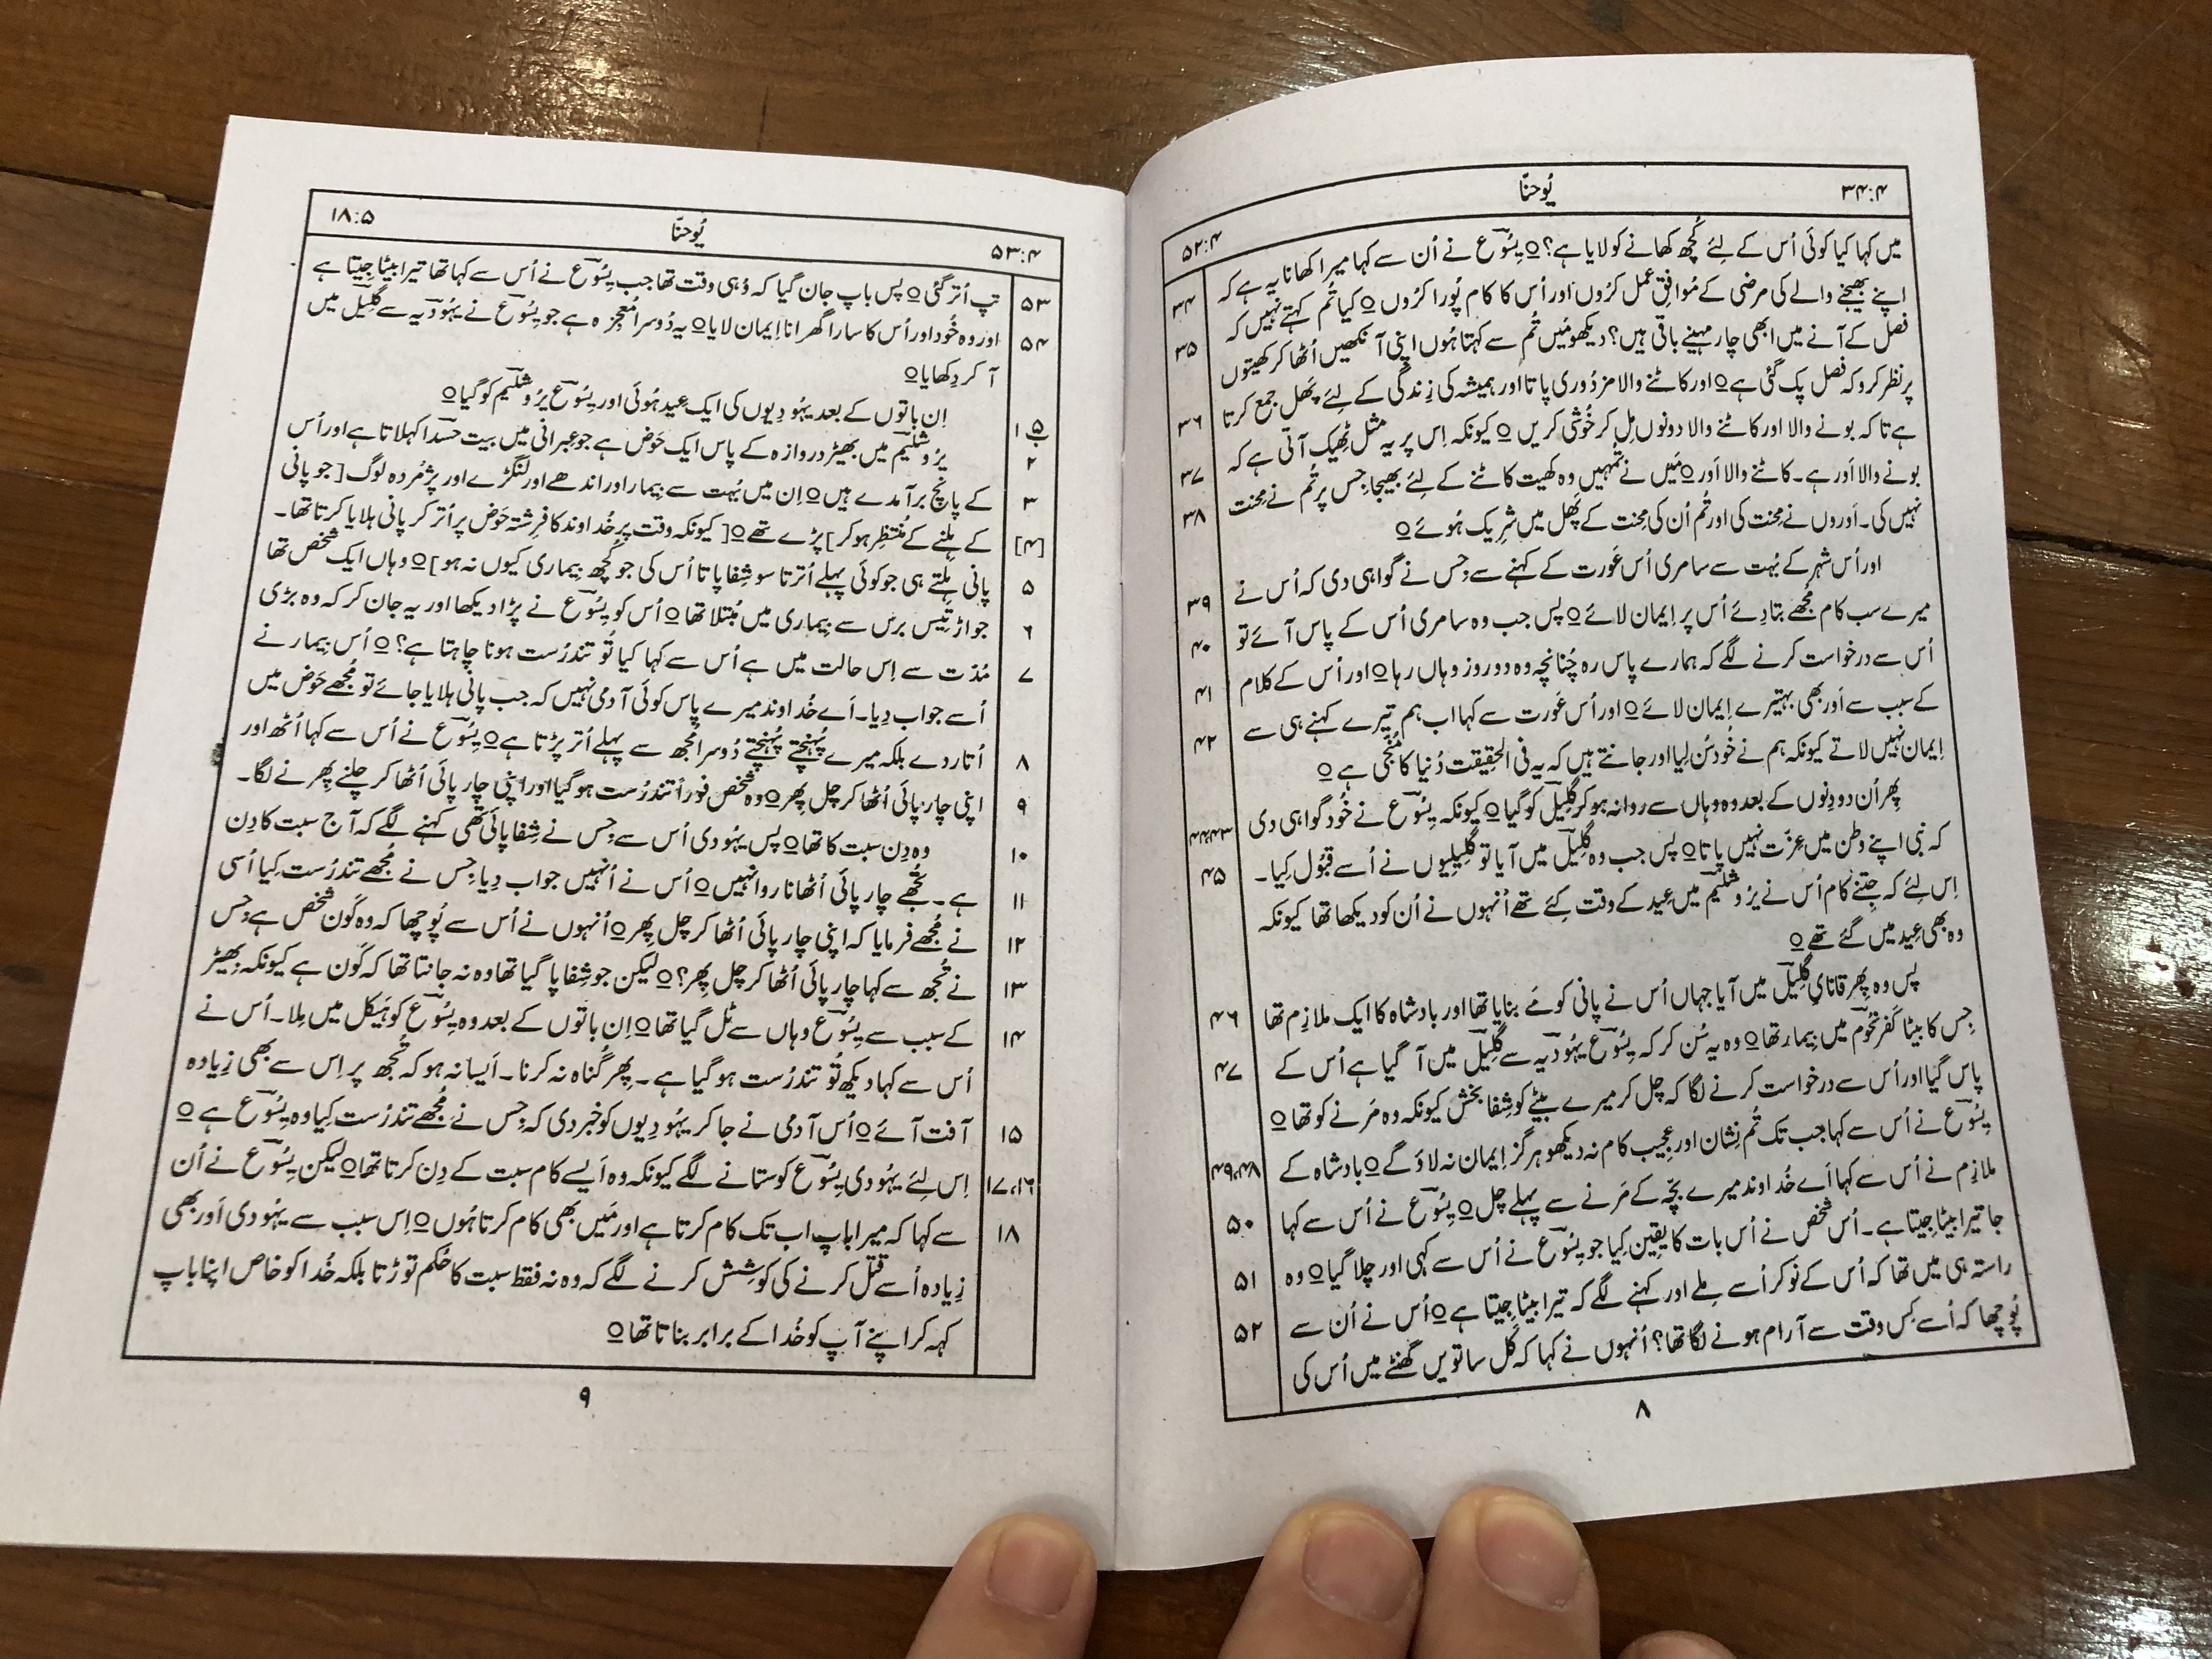 ۳۴:۴ یُوحنّا ۵۲:۴
میں کہا کیا کوئی اُس کے لِئے کُچھ کھانے کو لایا ہے؟ O یِسُوعؔ نے اُن سے کہا میرا کھانا یہ ہے کہ
۳۴ اپنے بھیجنے والے کی مرضی کے مُوافِق عمل کرُوں اور اُس کا کام پُورا کرُوں O کیا تُم کہتے نہیں کہ
۳۵ فصل کے آنے میں ابھی چار مہینے باقی ہیں؟ دیکھو مَیں تُم سے کہتا ہُوں اپنی آنکھیں اُٹھا کر کھیتوں
پر نظر کرو کہ فصل پک گئی ہے O اور کاٹنے والا مزدُوری پاتا اور ہمیشہ کی زِندگی کے لِئے پَھل جمع کرتا
۳۶ ہے تاکہ بونے والا اور کاٹنے والا دونوں مِل کر خُوشی کریں O کیونکہ اِس پر یہ مثل ٹِھیک آتی ہے کہ
۳۷ بونے والا اَور ہے۔ کاٹنے والا اَور O مَیں نے تُمہیں وہ کھیت کاٹنے کے لِئے بھیجا جِس پر تُم نے مِحنت
۳۸ نہیں کی۔ اَوروں نے مِحنت کی اور تُم اُن کی مِحنت کے پَھل میں شرِیک ہُوئے O
اور اُس شہر کے بُہت سے سامری اُس عَورت کے کہنے سے جِس نے گواہی دی کہ اُس نے
۳۹ میرے سب کام مُجھے بتا دِئے اُس پر اِیمان لائے O پس جب وہ سامری اُس کے پاس آئے تو
۴۰ اُس سے درخواست کرنے لگے کہ ہمارے پاس رہ چُنانچہ وہ دو روز وہاں رہا O اور اُس کے کلام
۴۱ کے سبب سے اَور بھی بہتیرے اِیمان لائے O اور اُس عَورت سے کہا اب ہم تیرے کہنے ہی سے
۴۲ اِیمان نہیں لاتے کیونکہ ہم نے خُود سُن لِیا اور جانتے ہیں کہ یہ فی الحقِیقت دُنیا کا مُنجّی ہے O
پِھر اُن دو دِنوں کے بعد وہ وہاں سے روانہ ہو کر گلِیلؔ کو گیا O کیونکہ یِسُوعؔ نے خُود گواہی دی
۴۳،۴۴ کہ نبی اپنے وطن میں عِزّت نہیں پاتا O پس جب وہ گلِیلؔ میں آیا تو گلِیلِیوں نے اُسے قبُول کِیا۔
۴۵ اِس لِئے کہ جِتنے کام اُس نے یرُوشلِیمؔ میں عِید کے وقت کِئے تھے اُنہوں نے اُن کو دیکھا تھا کیونکہ
وہ بھی عِید میں گئے تھے O
پس وہ پِھر قانایِ گلِیلؔ میں آیا جہاں اُس نے پانی کو مَے بنایا تھا اور بادشاہ کا ایک ملازِم تھا
۴۶ جِس کا بیٹا کَفرنحُومؔ میں بِیمار تھا O وہ یہ سُن کر کہ یِسُوعؔ یہُودیہؔ سے گلِیلؔ میں آ گیا ہے اُس کے
۴۷ پاس گیا اور اُس سے درخواست کرنے لگا کہ چل کر میرے بیٹے کو شِفا بخش کیونکہ وہ مَرنے کو تھا O
یِسُوعؔ نے اُس سے کہا جب تک تُم نِشان اور عجِیب کام نہ دیکھو ہرگِز اِیمان نہ لاؤ گے O بادشاہ کے
۴۸،۴۹ ملازِم نے اُس سے کہا اَے خُداوند میرے بچّہ کے مَرنے سے پہلے چل O یِسُوعؔ نے اُس سے کہا
۵۰ جا تیرا بیٹا جِیتا ہے۔ اُس شخص نے اُس بات کا یقِین کِیا جو یِسُوعؔ نے اُس سے کہی اور چلا گیا O وہ
۵۱ راستہ ہی میں تھا کہ اُس کے نَوکر اُسے مِلے اور کہنے لگے کہ تیرا بیٹا جِیتا ہے O اُس نے اُن سے
۵۲ پُوچھا کہ اُسے کِس وقت سے آرام ہونے لگا تھا؟ اُنہوں نے کہا کہ کل ساتویں گھنٹے میں اُس کی
۸
۵۳:۴ یُوحنّا ۱۸:۵
۵۳ تپ اُتر گئی O پس باپ جان گیا کہ وُہی وقت تھا جب یِسُوعؔ نے اُس سے کہا تھا تیرا بیٹا جِیتا ہے
۵۴ اور وہ خُود اور اُس کا سارا گھرانا اِیمان لایا O یہ دُوسرا مُعجِزہ ہے جو یِسُوعؔ نے یہُودیہؔ سے گلِیل میں
آ کر دِکھایا O
۵ باب ۱ اِن باتوں کے بعد یہُودِیوں کی ایک عِید ہُوئی اور یِسُوعؔ یرُوشلِیمؔ کو گیا O
۲ یرُوشلِیمؔ میں بھیڑ دروازہ کے پاس ایک حَوض ہے جو عِبرانی میں بیت حسداؔ کہلاتا ہے اور اُس
۳ کے پانچ برآمدے ہیں O اِن میں بُہت سے بِیمار اور اندھے اور لنگڑے اور پژمُردہ لوگ [جو پانی
[۴] کے ہِلنے کے مُنتظِر ہو کر] پڑے تھے O [کیونکہ وقت پر خُداوند کا فرِشتہ حَوض پر اُتر کر پانی ہلایا کرتا تھا۔
۵ پانی ہِلتے ہی جو کوئی پہلے اُترتا سو شِفا پاتا اُس کی جو کُچھ بِیماری کیوں نہ ہو] O وہاں ایک شخص تھا
۶ جو اڑتِیس برس سے بِیماری میں مُبتلا تھا O اُس کو یِسُوعؔ نے پڑا دیکھا اور یہ جان کر کہ وہ بڑی
۷ مُدّت سے اِس حالت میں ہے اُس سے کہا کیا تُو تندرُست ہونا چاہتا ہے؟ O اُس بِیمار نے
اُسے جواب دِیا۔ اَے خُداوند میرے پاس کوئی آدمی نہیں کہ جب پانی ہلایا جائے تو مُجھے حَوض میں
۸ اُتار دے بلکہ میرے پُہنچتے پُہنچتے دُوسرا مُجھ سے پہلے اُتر پڑتا ہے O یِسُوعؔ نے اُس سے کہا اُٹھ اور
۹ اپنی چارپائی اُٹھا کر چل پِھر O وہ شخص فوراً تندرُست ہو گیا اور اپنی چارپائی اُٹھا کر چلنے پِھرنے لگا۔
۱۰ وہ دِن سبت کا تھا O پس یہُودی اُس سے جِس نے شِفا پائی تھی کہنے لگے کہ آج سبت کا دِن
۱۱ ہے۔ تُجھے چارپائی اُٹھانا روا نہیں O اُس نے اُنہیں جواب دِیا جِس نے مُجھے تندرُست کِیا اُسی
۱۲ نے مُجھے فرمایا کہ اپنی چارپائی اُٹھا کر چل پِھر O اُنہوں نے اُس سے پُوچھا کہ وہ کَون شخص ہے جِس
۱۳ نے تُجھ سے کہا چارپائی اُٹھا کر چل پِھر؟ O لیکن جو شِفا پا گیا تھا وہ نہ جانتا تھا کہ کَون ہے کیونکہ بِھیڑ
۱۴ کے سبب سے یِسُوعؔ وہاں سے ٹل گیا تھا O اِن باتوں کے بعد وہ یِسُوعؔ کو ہَیکل میں مِلا۔ اُس نے
اُس سے کہا دیکھ تُو تندرُست ہو گیا ہے۔ پِھر گُناہ نہ کرنا۔ اَیسا نہ ہو کہ تُجھ پر اِس سے بھی زِیادہ
۱۵ آفت آئے O اُس آدمی نے جا کر یہُودِیوں کو خبر دی کہ جِس نے مُجھے تندرُست کِیا وہ یِسُوعؔ ہے O
۱۶،۱۷ اِس لِئے یہُودی یِسُوعؔ کو ستانے لگے کیونکہ وہ اَیسے کام سبت کے دِن کرتا تھا O لیکن یِسُوعؔ نے اُن
۱۸ سے کہا کہ میرا باپ اب تک کام کرتا ہے اور مَیں بھی کام کرتا ہُوں O اِس سبب سے یہُودی اَور بھی
زِیادہ اُسے قتل کرنے کی کوشِش کرنے لگے کہ وہ نہ فقط سبت کا حُکم توڑتا بلکہ خُدا کو خاص اپنا باپ
کہہ کر اپنے آپ کو خُدا کے برابر بناتا تھا O
۹